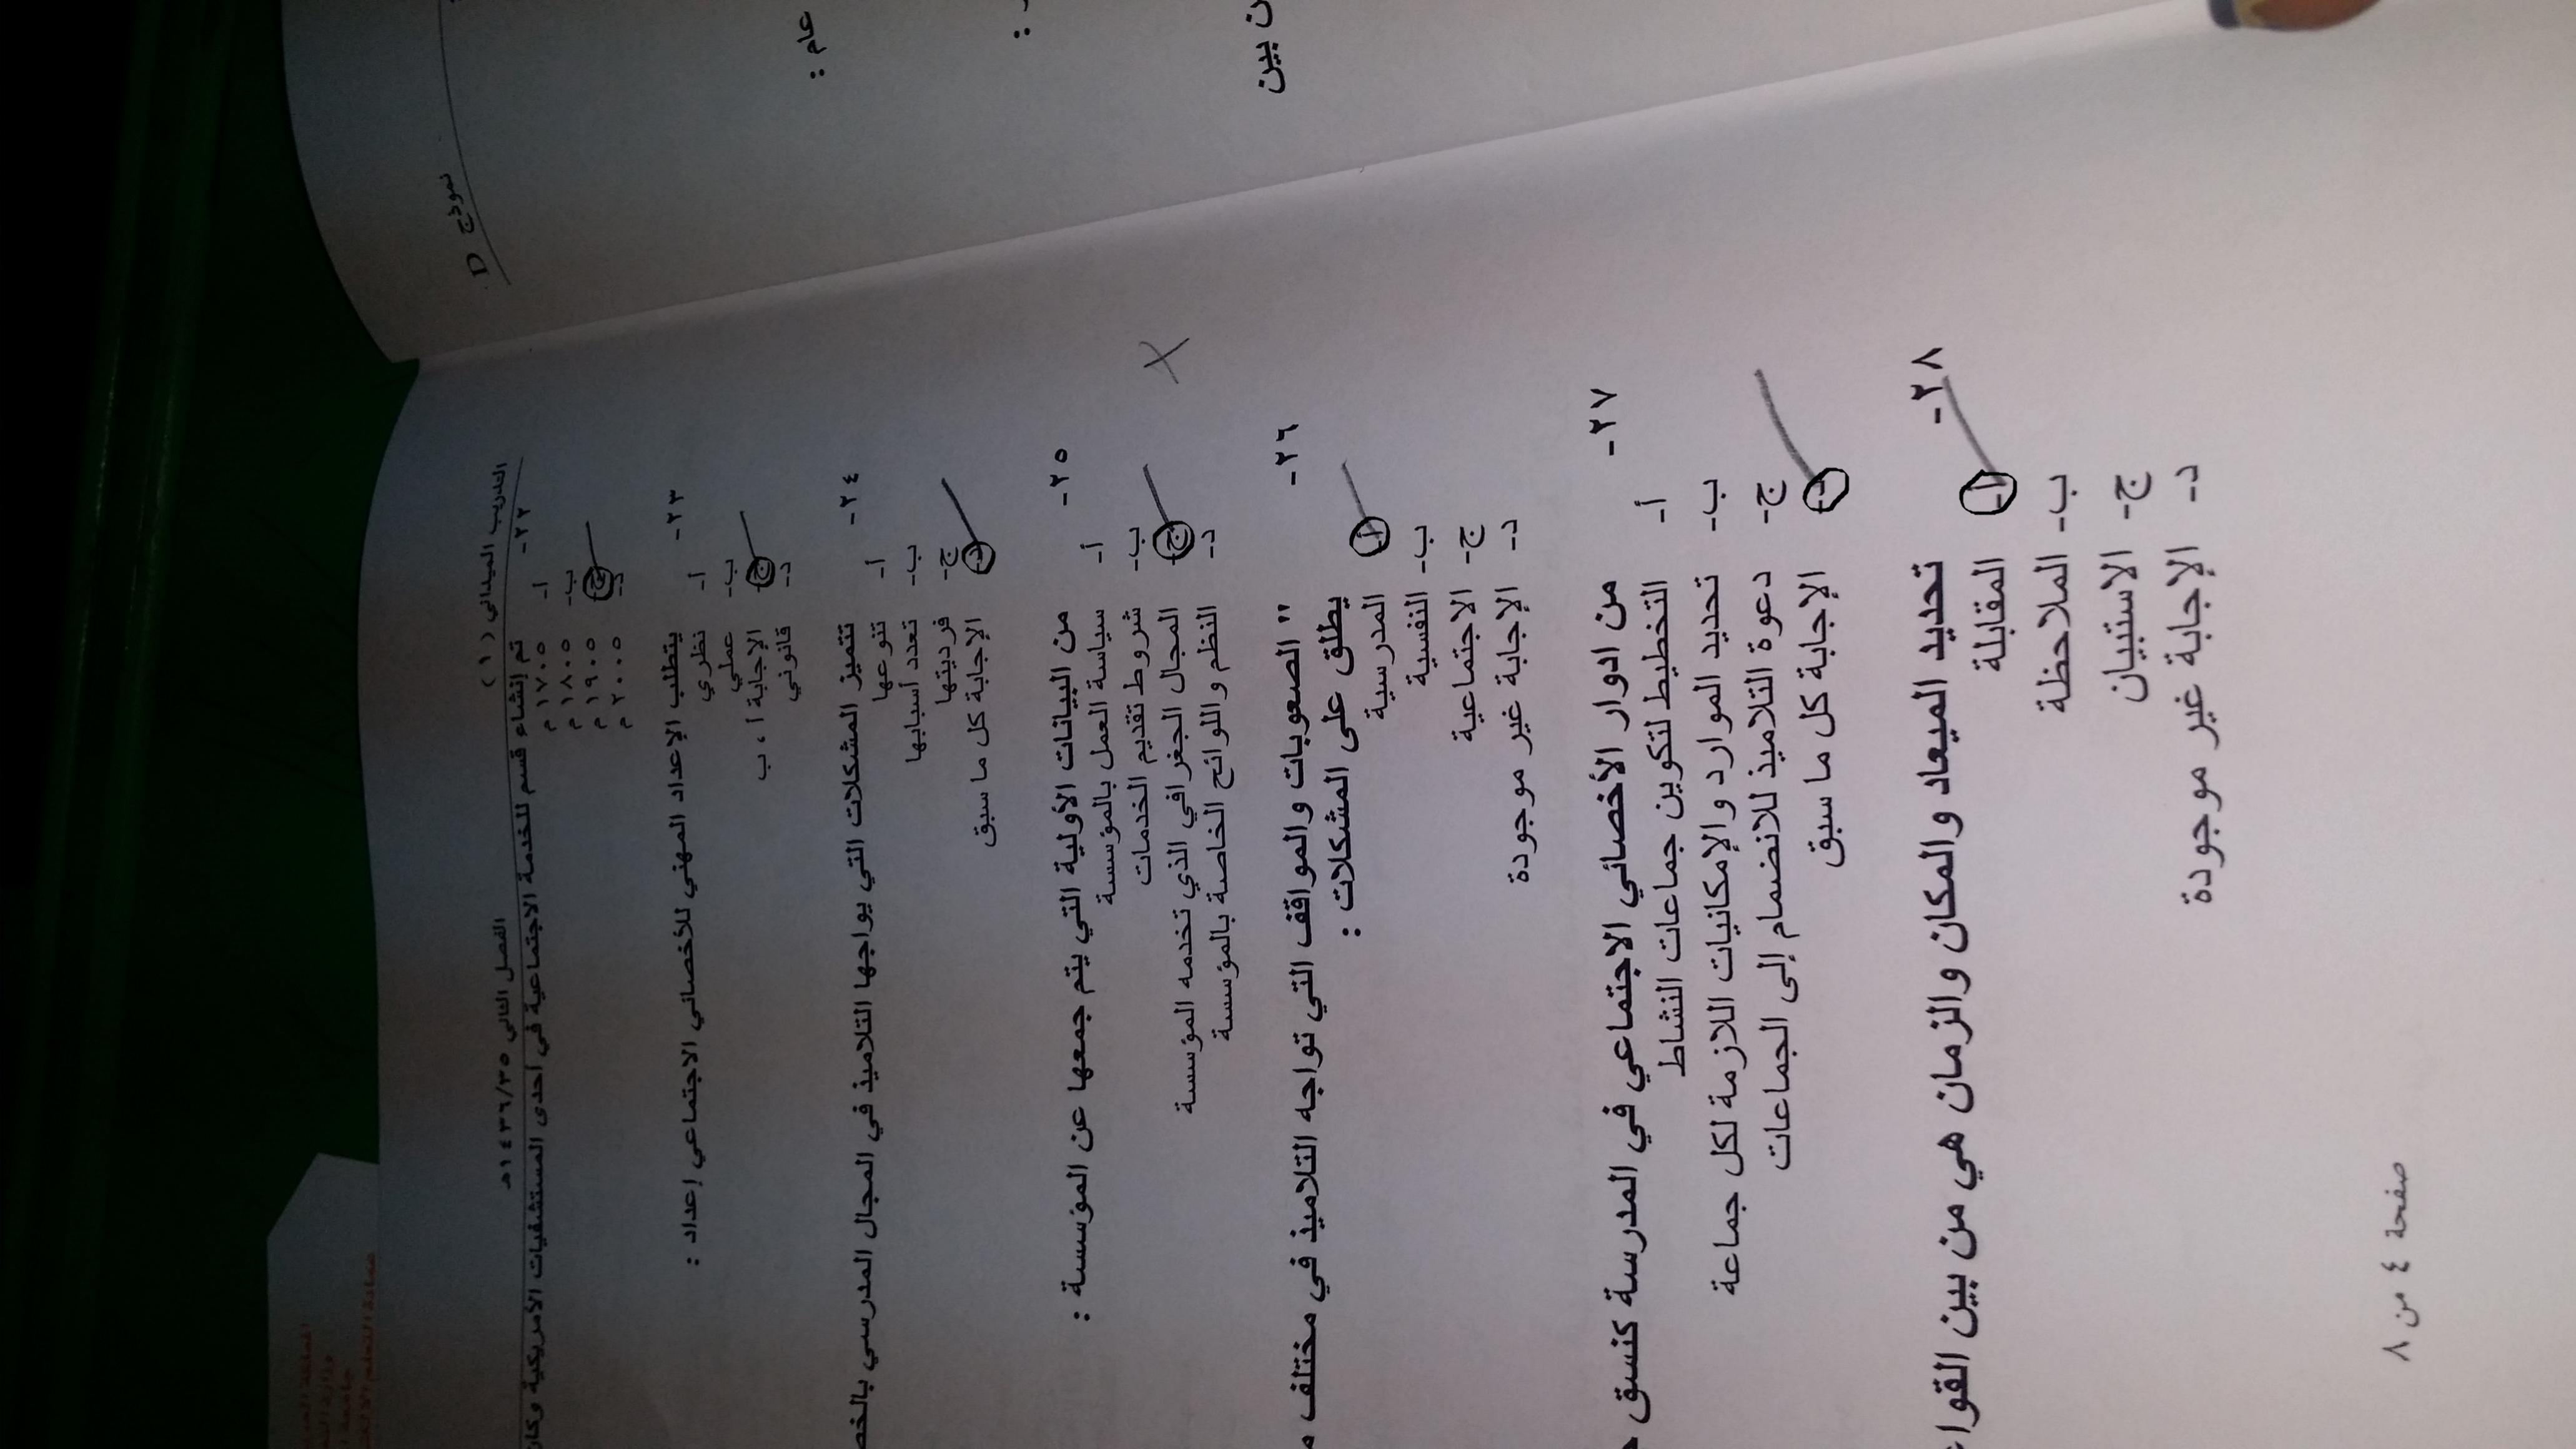 التدريب الميداني (١) الفصل الثاني ١٤٣٦/٣٥هـ
٢٢- تم إنشاء قسم للخدمة الاجتماعية في احدى المستشفيات الأمريكية وكان
أ- ١٧٠٥ م
ب- ١٨٠٥ م
ج- ١٩٠٥ م
د- ٢٠٠٥ م
٢٣- يتطلب الإعداد المهني للأخصائي الاجتماعي إعداد :
أ- نظري
ب- عملي
ج- الإجابة أ ، ب
د- قانوني
٢٤- تتميز المشكلات التي يواجها التلاميذ في المجال المدرسي
أ- تنوعها
ب- تعدد أسبابها
ج- فرديتها
د- الإجابة كل ما سبق
٢٥- من البيانات الأولية التي يتم جمعها عن المؤسسة :
أ- سياسة العمل بالمؤسسة
ب- شروط تقديم الخدمات
ج- المجال الجغرافي الذي تخدمه المؤسسة
د- النظم واللوائح الخاصة بالمؤسسة
٢٦- " الصعوبات والمواقف التي تواجه التلاميذ في مختلف
يطلق على المشكلات :
أ- المدرسية
ب- النفسية
ج- الاجتماعية
د- الإجابة غير موجودة
٢٧- من ادوار الأخصائي الاجتماعي في المدرسة كنسق
أ- التخطيط لتكوين جماعات النشاط
ب- تحديد الموارد والإمكانيات اللازمة لكل جماعة
ج- دعوة التلاميذ للانضمام إلى الجماعات
د- الإجابة كل ما سبق
٢٨- تحديد الميعاد والمكان والزمان هي من بين
أ- المقابلة
ب- الملاحظة
ج- الاستبيان
د- الإجابة غير موجودة
صفحة ٤ من ٨
نموذج D
عام :
:
ن بين